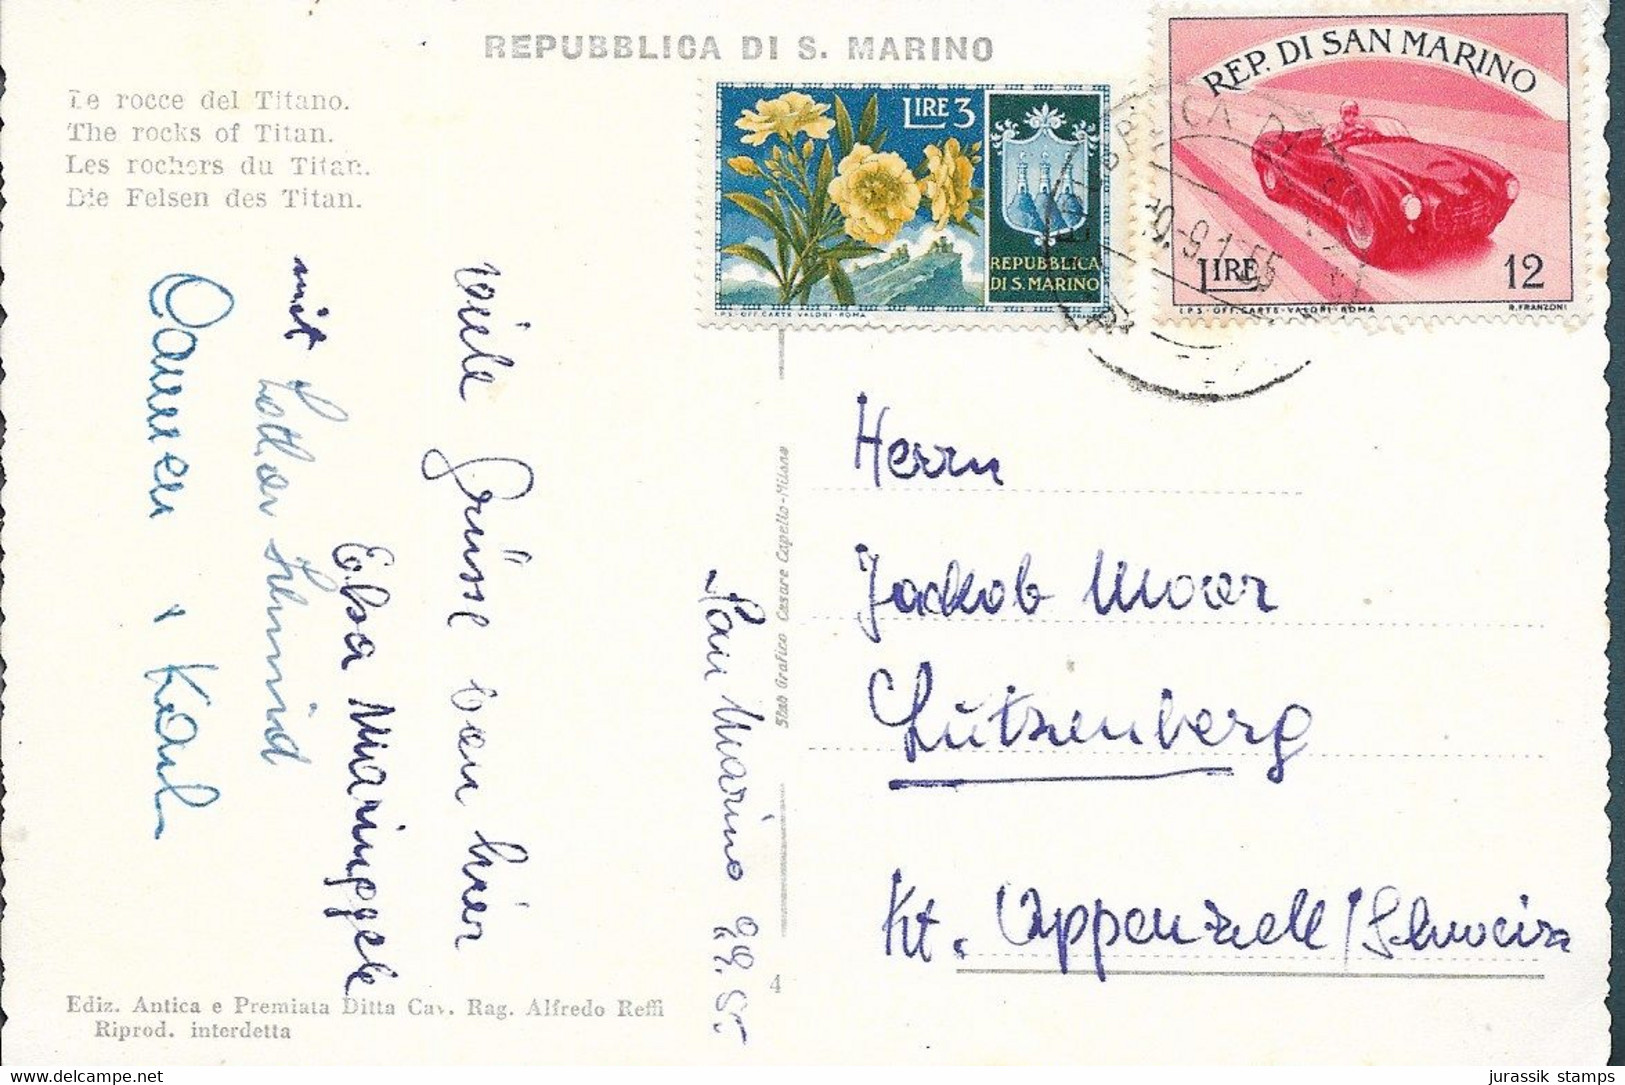 REPUBBLICA DI S. MARINO
Le rocce del Titano.
The rocks of Titan.
Les rochers du Titan.
Die Felsen des Titan.
LIRE 3
REPUBBLICA
DI S. MARINO
I.P.S.-OFF. CARTE VALORI-ROMA
REP. DI SAN MARINO
LIRE 12
I.P.S.-OFF. CARTE-VALORI-ROMA R. FRANZONI
San Marino 9.9.55
viele Grüsse von hier
Elsa
mit Lothar Schmid
+ Karl
Herrn
Jackob
Lutzenberg
Kt. Appenzell/Schweiz
Stab Grafico Cesare Capello-Milano
4
Ediz. Antica e Premiata Ditta Cav. Rag. Alfredo Reffi
Riprod. interdetta
jurassik stamps